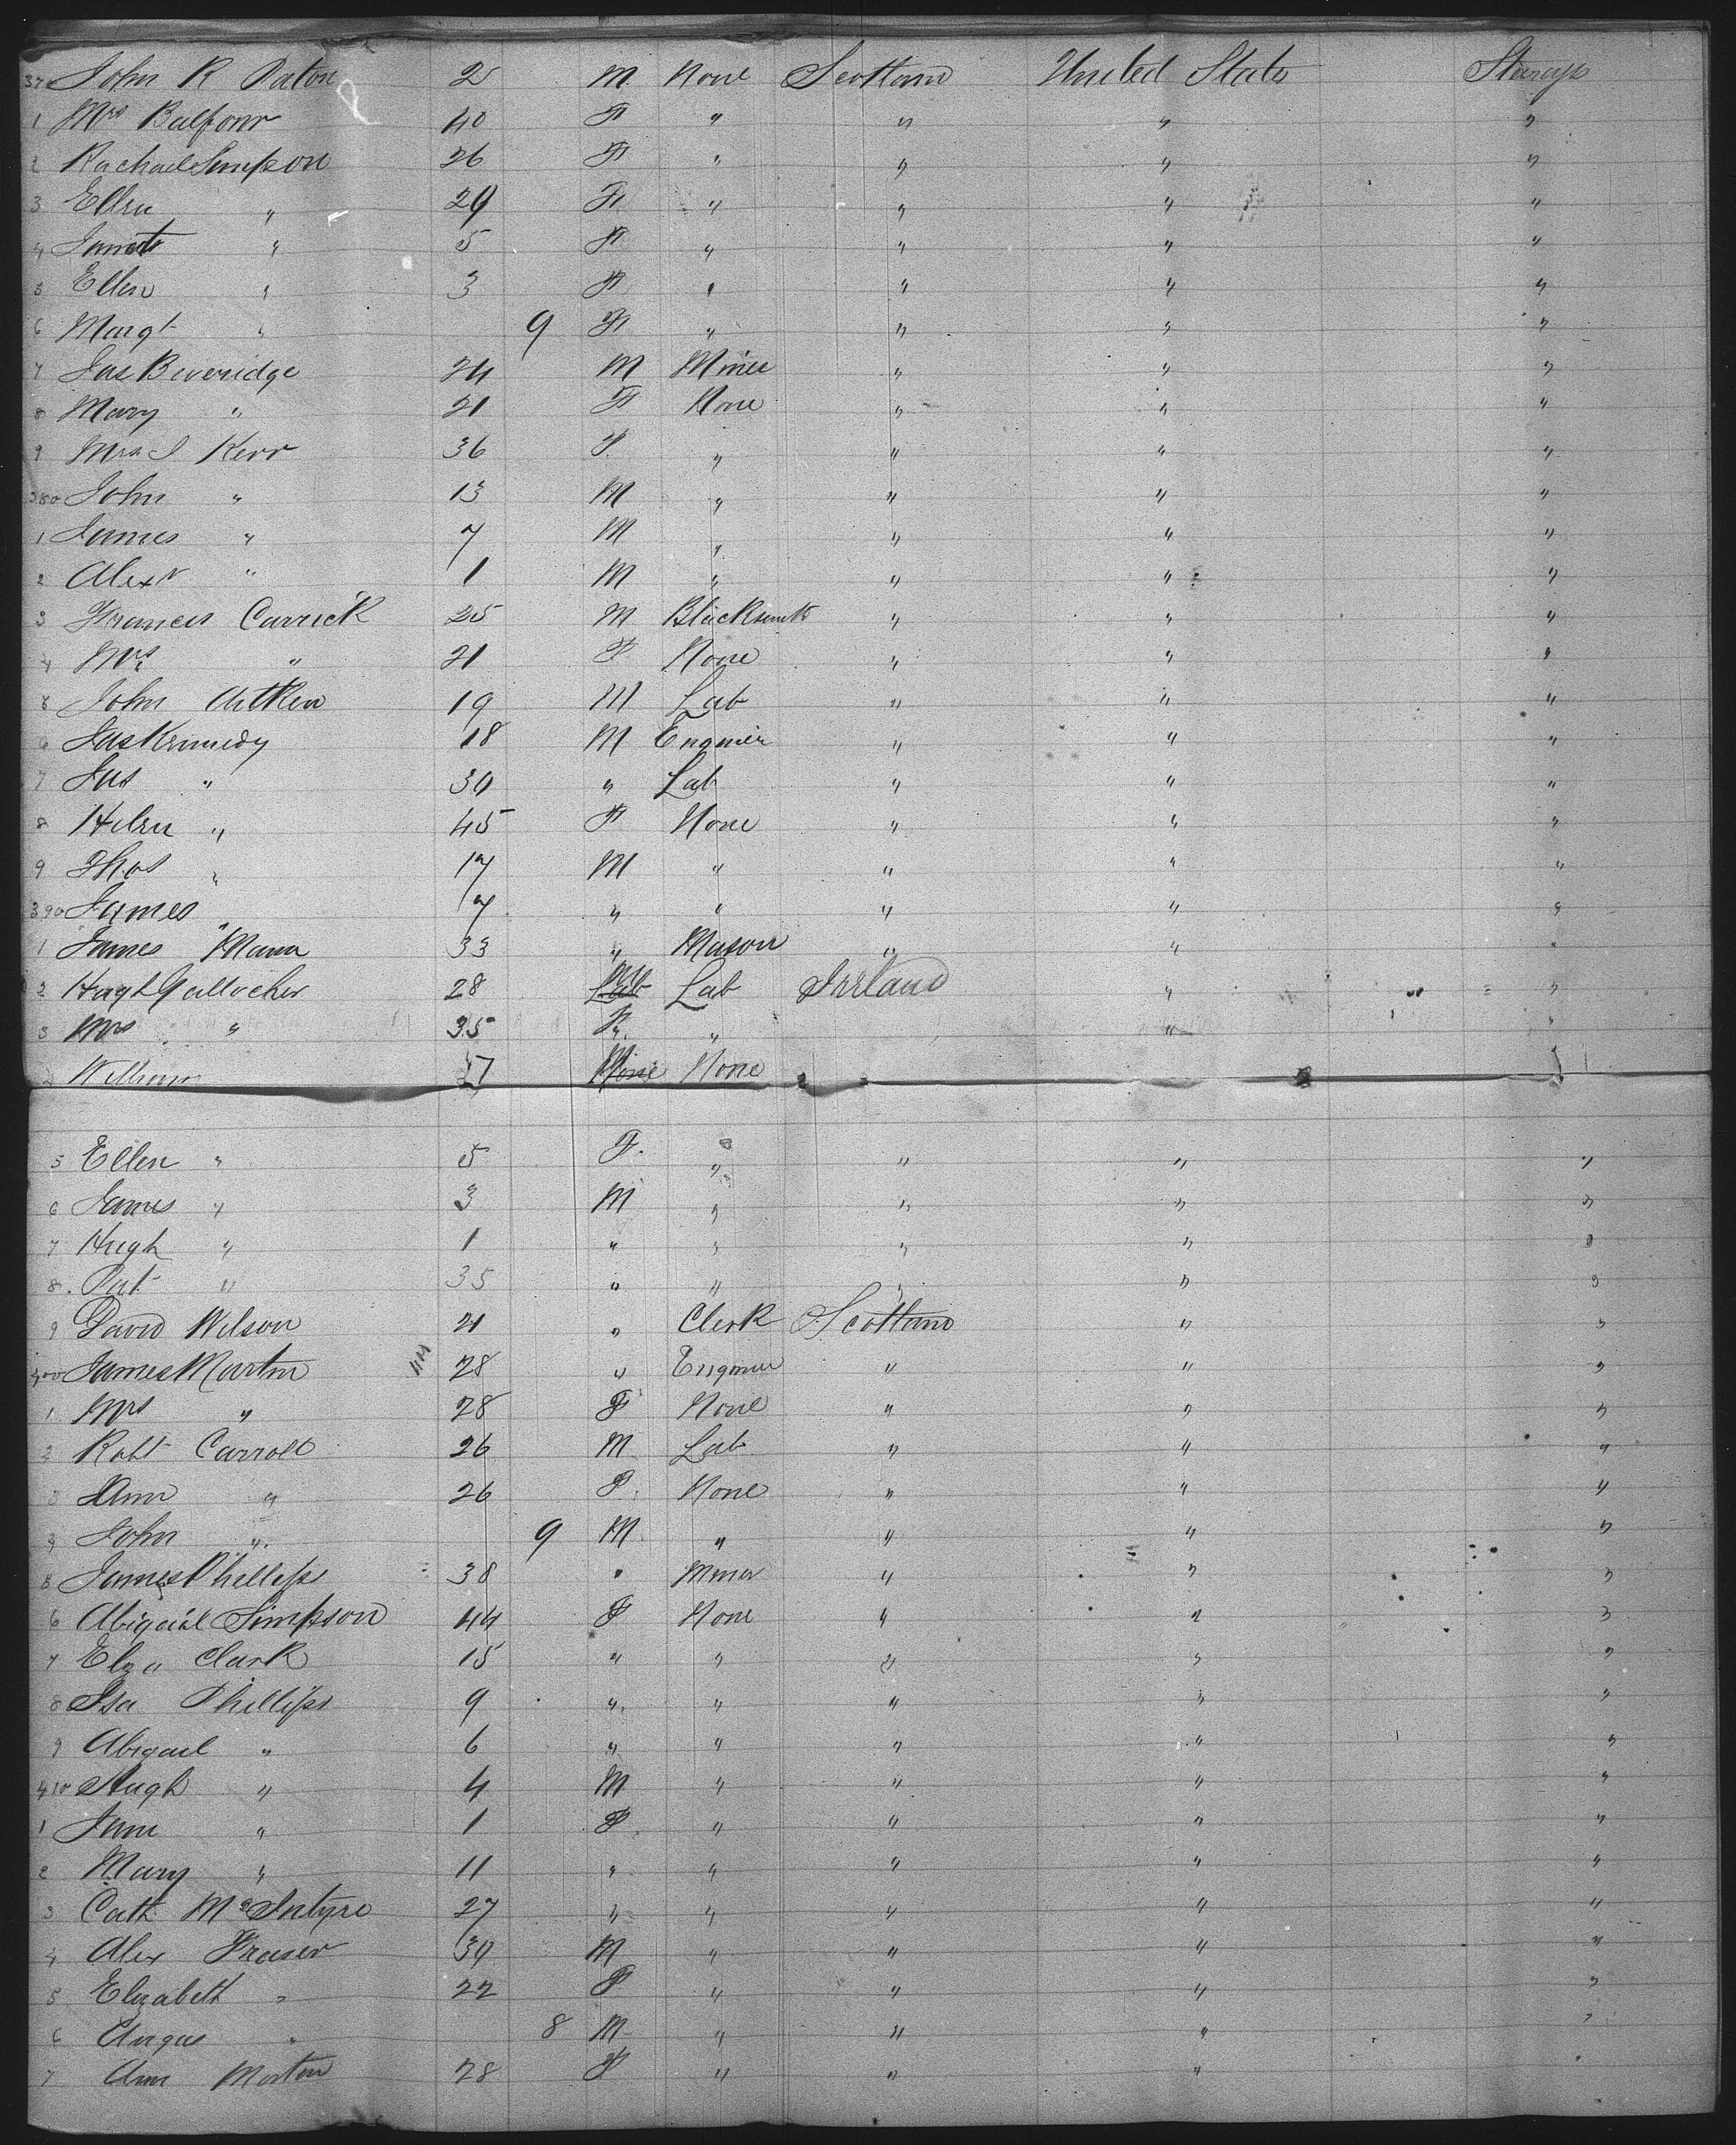 370 John R Paton 2 M. None Scotland United States Steerage
1 Mrs Balfour 40 F " " " "
2 Rachael Simpson 26 F " " " "
3 Ellen " 29 F. " " " "
4 Janet " 5 F " " " "
5 Ellen " 3 F " " " "
6 Margt " 9 F " " " "
7 Jas Beveridge 24 M Miner " " "
8 Mary " 21 F None " " "
9 Mrs J Kerr 36 F. " " " "
380 John " 13 M " " " "
1 James " 7 M " " " "
2 Alexr " 1 M " " " "
3 Francis Carrick 25 M Blacksmith " " "
4 Mrs " 21 F None " " "
5 John Aitken 19 M Lab " " "
6 Jas Kennedy 18 M Enginer " " "
7 Jas " 30 " Lab " " "
8 Helen " 45 F None " " "
9 Thos " 17 M " " " "
390 James " 7 " " " " "
1 James Mann 33 " Mason " " "
2 Hugh Gallocher 28 Lab Lab Ireland " "
3 Mrs " 35 F. " " "
William 7 None None
5 Ellen " 5 F. " " " "
6 James " 3 M " " " "
7 Hugh " 1 " " " " "
8. Pat " 35 " " " " "
9 David Wilson 21 " Clerk Scotland " "
400 James Martin 28 " Enginer " " "
1 Mrs " 28 F None " " "
2 Robt Carroll 26 M Lab " " "
3 Ann " 26 F. None " " "
John " 9 M. " " " "
James Phillips 38 " Miner " " "
6 Abigail Simpson 44 F None " " "
7 Elza Clark 15 " " " " "
8 Isa Phillips 9 " " " " "
9 Abigail " 6 " " " " "
410 Hugh " 4 M " " " "
1 Jane " 1 F " " " "
2 Mary " 11 " " " " "
3 Cath McIntyre 27 " " " " "
4 Alex Fraser 30 M " " " "
5 Elizabeth " 22 F " " " "
6 Angus " 8 M " " " "
7 Ann Morton 28 F " " "